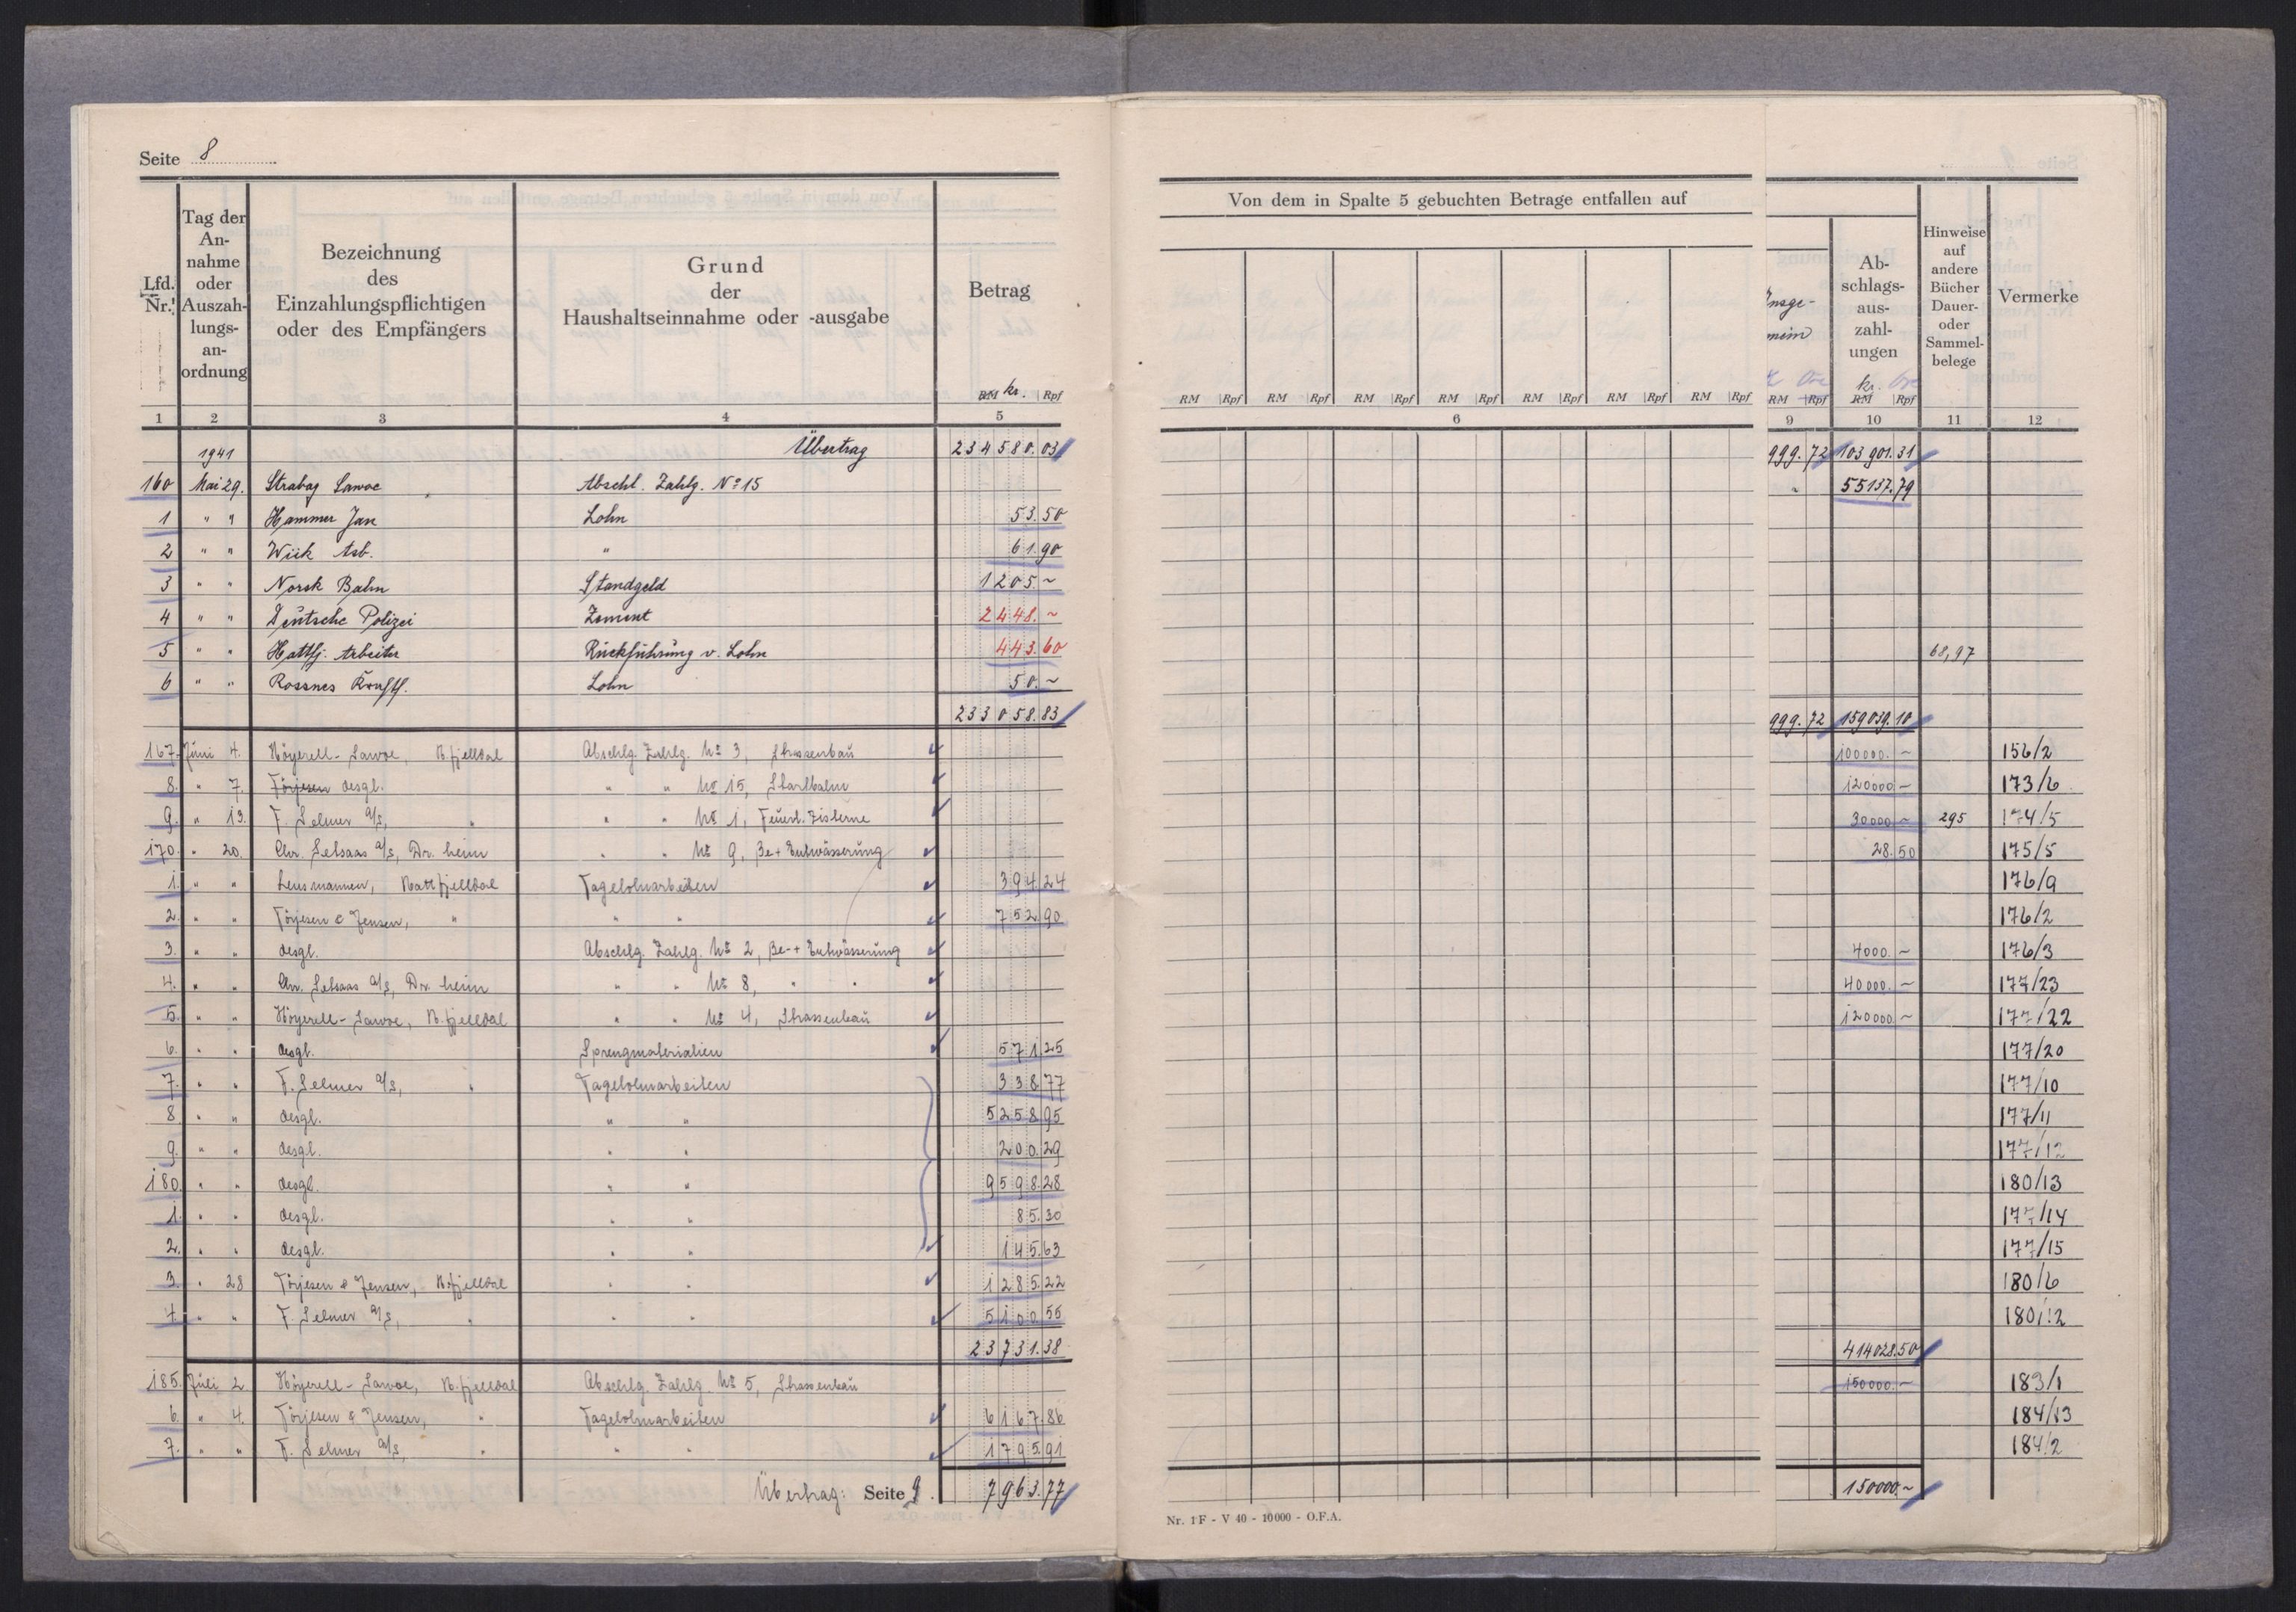 Seite 8
Lfd. Nr. | Tag der Annahme oder Auszahlungsanordnung | Bezeichnung des Einzahlungspflichtigen oder des Empfängers | Grund der Haushaltseinnahme oder -ausgabe | Betrag | Von dem in Spalte 5 gebuchten Betrage entfallen auf | Insgemein | Abschlagsauszahlungen | Hinweise auf andere Bücher Dauer- oder Sammelbelege | Vermerke
RM kr. Rpf | RM Rpf RM Rpf RM Rpf RM Rpf RM Rpf RM Rpf RM Rpf | Öre RM Rpf | kr. Öre RM Rpf
1 2 3 4 5 6 9 10 11 12
1941 Übertrag 234580.03 999.72 103901.31
160 Mai 29. Strabag Sawoe Abschl. Zahlg. No 15 " 55137.79
1 " " Hammer Jan Lohn 53.50
2 " " Wiik Asb. " 61.90
3 " " Norsk Bahn Standgeld 1205.~
4 " " Deutsche Polizei Zement 2448.~
5 " " Hattfj. Arbeiter Rückführung v. Lohn 443.60 68,97
6 " " Rossnes Lohn 50.~
233058.83 999.72 159039.10
167. Juni 4. Höyerell-Sawoe, H.fjelldal Abschlg. Zahlg. No 3, Strassenbau 100000.~ 156/2
8. " 7. Törjesen desgl. " " No 15, Startbahn 120000.~ 173/6
9. " 13. F. Selmer a/s, " " " No 1, Feuerl. Zisterne 30000.~ 295 174/5
170. " 20. Chr. Selsaas a/s, Dr. heim " " No 9, Be+ Entwässerung 28.50 175/5
1. " " Lensmannen, Hattfjelldal Tagelohnarbeiten 394.24 176/9
2. " " Törjesen & Jensen, " " " 752.90 176/2
3. " " desgl. Abschlg. Zahlg. No 2, Be-+ Entwässerung 4000.~ 176/3
4. " " Chr. Selsaas a/s, Dr. heim " " No 8, " " 40000.~ 177/23
5. " " Höyerell-Sawoe, H.fjelldal " " No 4, Strassenbau 120000.~ 177/22
6. " " desgl. Sprengmaterialien 571.25 177/20
7. " " F. Selmer a/s, " Tagelohnarbeiten 338.77 177/10
8. " " desgl. " " 5258.95 177/11
9. " " desgl. " " 200.29 177/12
180. " " desgl. " " 9598.28 180/13
1. " " desgl. " " 85.30 177/14
2. " " desgl. " " 145.63 177/15
3. " 28 Törjesen & Jensen, H.fjelldal " " 1285.22 180/6
4. " " F. Selmer a/s, " " " 5100.55 180/12
23731.38 414028.50
185. Juli 2. Höyerell-Sawoe, H.fjelldal Abschlg. Zahlg. No 5, Strassenbau 150000.~ 183/1
6. " 4. Törjesen & Jensen, " Tagelohnarbeiten 6167.86 184/13
7. " " F. Selmer a/s, " " " 1795.91 184/2
Übertrag: Seite 9. 7963.77 150000.~
Nr. 1 F - V 40 - 10000 - O.F.A.